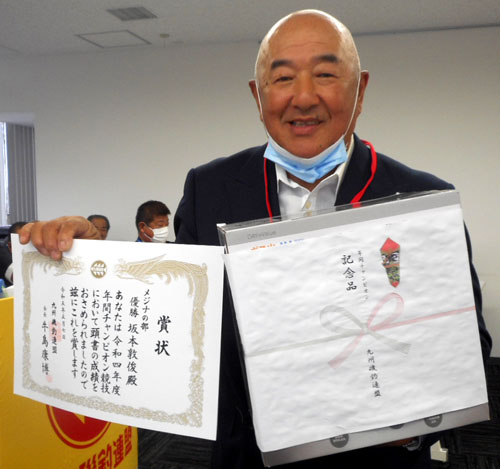 賞状
メジナの部
優勝 坂本敦俊殿
あなたは令和四年度
年間チャンピオン競技
において頭書の成績を
おさめられましたので
茲にこれを賞します
令和五年五月七日
九州磯釣連盟
会長 牛島康博
年間チャンピオン
記念品
九州磯釣連盟
釣連盟